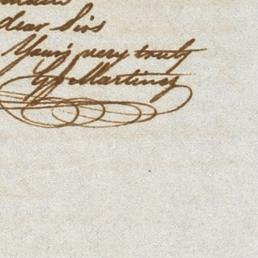 dear Sirs
Yours very truly
Martinez